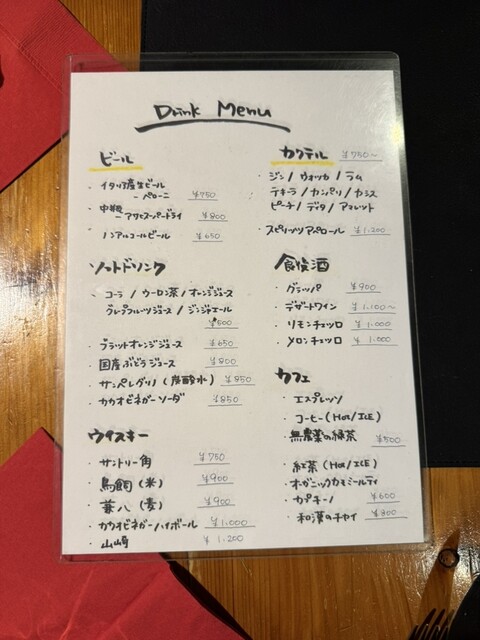 Drink Menu
ビール
・イタリア産生ビール
- ペローニ ¥750
・中瓶
- アサヒスーパードライ ¥800
・ノンアルコールビール ¥650
ソフトドリンク
・コーラ / ウーロン茶 / オレンジジュース
グレープフルーツジュース / ジンジャエール
¥500
・ブラッドオレンジジュース ¥650
・国産ぶどうジュース ¥800
・サンペレグリノ (炭酸水) ¥850
・カカオビネガーソーダ ¥850
ウイスキー
・サントリー角 ¥750
・鳥飼 (米) ¥900
・兼八 (麦) ¥900
・カカオビネガーハイボール ¥1,000
・山崎 ¥1,200
カクテル ¥750~
・ジン / ウォッカ / ラム
テキーラ / カンパリ / カシス
ピーチ / ディタ / アマレット
・スピリッツアペロール ¥1,200
食後酒
・グラッパ ¥900
・デザートワイン ¥1,100~
・リモンチェッロ ¥1,000
・メロンチェッロ ¥1,000
カフェ
・エスプレッソ
・コーヒー (Hot/ICE)
無農薬の緑茶 ¥500
・紅茶 (Hot/ICE)
・オーガニックカモミールティ
・カプチーノ ¥600
・和漢のチャイ ¥800